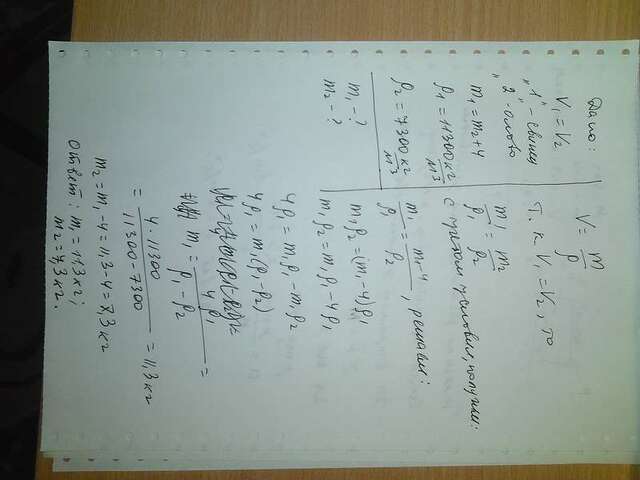 Дано:
V₁ = V₂
"1" - свинец
"2" - олово
m₁ = m₂ + 4
ρ₁ = 11300 кг/м³
ρ₂ = 7300 кг/м³
m₁ - ?
m₂ - ?
V = m/ρ
Т. к. V₁ = V₂, то
m₁/ρ₁ = m₂/ρ₂
С учётом условия, получим:
m₁/ρ₁ = (m₁-4)/ρ₂, решаем:
m₁ρ₂ = (m₁-4)ρ₁
m₁ρ₂ = m₁ρ₁ - 4ρ₁
4ρ₁ = m₁ρ₁ - m₁ρ₂
4ρ₁ = m₁(ρ₁ - ρ₂)
m₁ = 4ρ₁/(ρ₁ - ρ₂) =
= 4·11300/(11300-7300) = 11,3 кг
m₂ = m₁ - 4 = 11,3 - 4 = 7,3 кг
Ответ: m₁ = 11,3 кг;
m₂ = 7,3 кг.